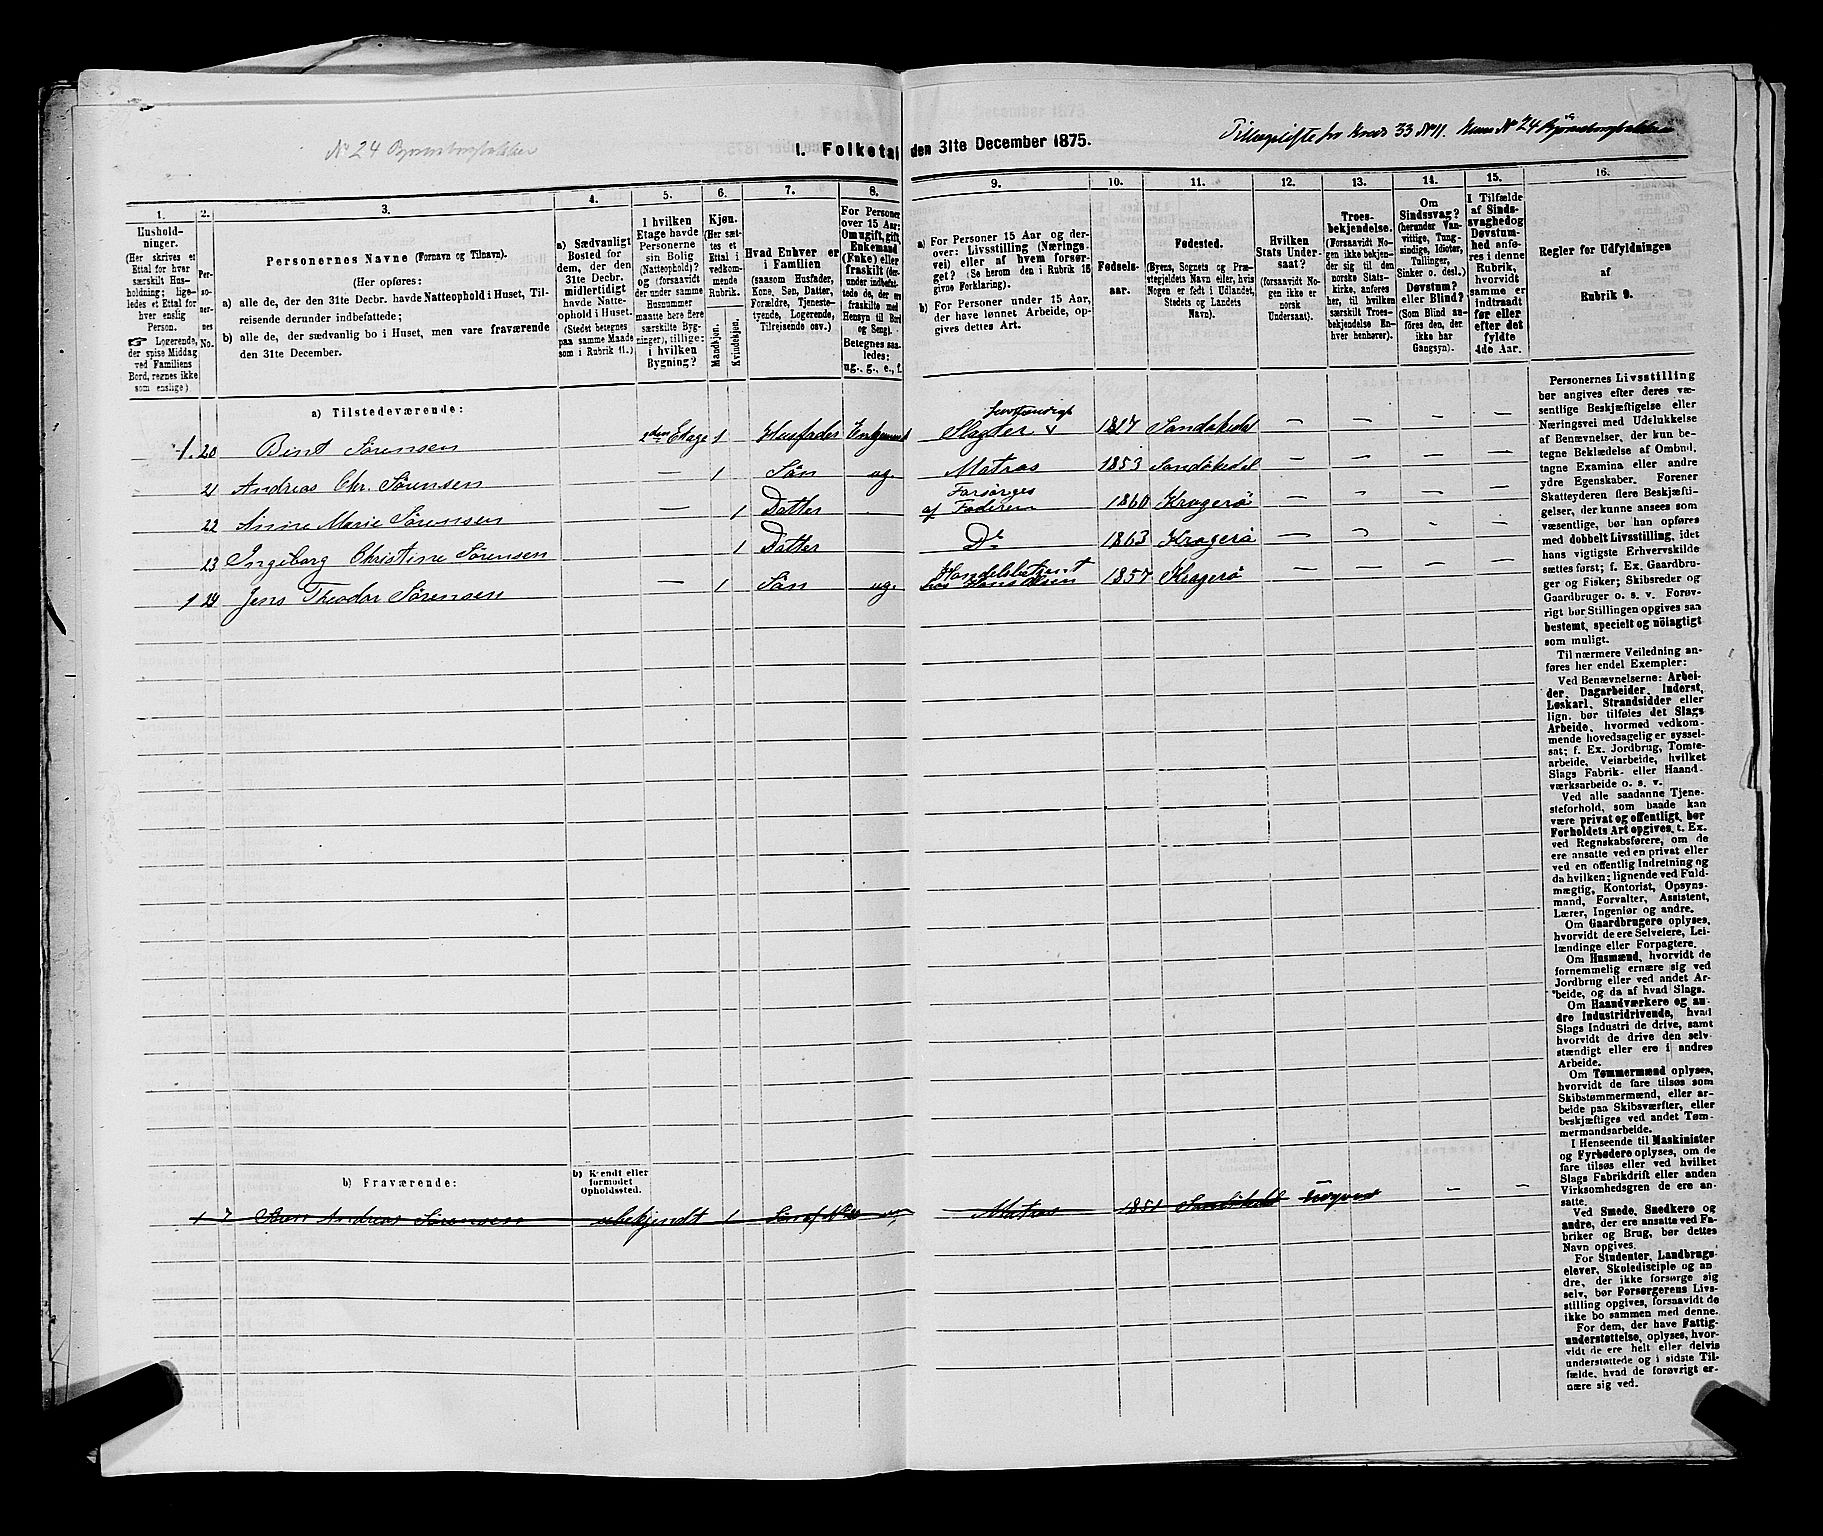 Nº 24 Bjørnsborgbakken
Tillægsliste for Kreds 33 Nº 11. Huus Nº 24 Bjørnsborgbakken
1. Folketal den 31te December 1875.
1. 2. 3. 4. 5. 6. 7. 8. 9. 10. 11. 12. 13. 14. 15. 16.
Husholdninger.
(Her skrives et
Ettal for hver
særskilt Husholdning;
ligeledes et Ettal for
hver enslig
Person.
☞ Logerende,
der spise Middag
ved Familiens
Bord, regnes ikke
som enslige).
Personernes No.
Personernes Navne (Fornavn og Tilnavn).
(Her opføres:
a) alle de, der den 31te Decbr. havde Natteophold i Huset, Tilreisende derunder indbefattede;
b) alle de, der sædvanlig bo i Huset, men vare fraværende
den 31te December.
a) Sædvanligt
Bosted for
dem, der den
31te Decbr.
midlertidigt
havde Natteophold i Huset.
(Stedet betegnes
paa samme Maade
som i Rubrik 11.)
I hvilken
Etage havde
Personerne
sin Bolig
(Natteophold)? og
(forsaavidt
der under samme
Husnummer
maatte høre flere
særskilte Bygninger), tillige:
i hvilken
Bygning?
Kjøn.
(Her sættes et
Ettal i
vedkommende
Rubrik.
Mandkjøn.
Kvindekjøn.
Hvad Enhver er
i Familien
(saasom Husfader,
Kone, Søn, Datter,
Forældre, Tjenestetyende, Logerende,
Tilreisende osv.)
For Personer
over 15 Aar:
Om ugift, gift,
Enkemand
(Enke) eller
fraskilt (derunder indbefattede de, der ere
fraskilte med
Hensyn til Bord
og Seng).
Betegnes saaledes:
ug., g., e., f.
a) For Personer 15 Aar og derover: Livsstilling (Næringsvei) eller af hvem forsørget? (Se herom den i Rubrik 16
givne Forklaring).
b) For Personer under 15 Aar,
der have lønnet Arbeide, opgives dettes Art.
Fødselsaar.
Fødested.
(Byens, Sognets og Præstegjeldets Navn eller, hvis
Nogen er født i Udlandet,
Stedets og Landets
Navn).
Hvilken
Stats Undersaat?
(forsaavidt Nogen ikke er
norsk
Undersaat).
Troesbekjendelse.
(Forsaavidt Nogen ikke bekjender sig til den
norske Statskirke, anføres
her, til hvilken
særskilt Troesbekjendelse Enhver henhører).
Om
Sindssvag?
(herunder Vanvittige, Tungsindige, Idioter,
Tullinger,
Sinker o. desl.)
Døvstum?
eller Blind?
(Som Blind anføres den, der
ikke har
Gangsyn).
I Tilfælde
af Sindssvaghed og
Døvstumhed anføres i denne
Rubrik,
hvorvidt
samme er
indtraadt
før eller
efter det
fyldte
4de Aar.
Regler for Udfyldningen
af
Rubrik 9.
a) Tilstedeværende:
1. 20 Bent Sørensen 2den Etage 1 Husfader Enkemand Slagter selvstændigt 1827 Sandøkedal — — — —
21 Andreas Chr. Sørensen — 1 Søn ug. Matros 1853 Sandøkedal — — — —
22 Anne Marie Sørensen 1 Datter Forsørges af Faderen 1860 Kragerö — — — —
23 Ingeborg Christine Sørensen 1 Datter Do 1863 Kragerö — — — —
1 24 Jens Theodor Sørensen — 1 Søn ug. Handelsbetjent hos Hans Olsen 1857 Kragerö — — — —
b) Fraværende:
b) Kjendt eller
formodet
Opholdssted.
1 7 Søren Andreas Sørensen ubekjendt 1 Søn af No 20 ug. Matros 1851 Sandökedal — —
Personernes Livsstilling
bør angives efter deres væsentlige Beskjæftigelse eller
Næringsvei med Udelukkelse
af Benævnelser, der kun betegne Beklædelse af Ombud,
tagne Examina eller andre
ydre Egenskaber. Forener
Skatteyderen flere Beskjæftigelser, der kunne ansees som
væsentlige, bør han opføres
med dobbelt Livsstilling, idet
hans vigtigste Erhvervskilde
sættes først; f. Ex. Gaardbruger og Fisker; Skibsreder og
Gaardbruger o. s. v. Forøvrigt bør Stillingen opgives saa
bestemt, specielt og nöiagtigt
som muligt.
Til nærmere Veiledning anføres her endel Exempler:
Ved Benævnelserne: Arbeider, Dagarbeider, Inderst,
Løskarl, Strandsidder eller
lign. bør tilføies det Slags
Arbeide, hvormed vedkommende hovedsagelig er sysselsat; f. Ex. Jordbrug, Tomtearbeide, Veiarbeide, hvilket
Slags Fabrik- eller Haandværksarbeide o. s. v.
Ved alle saadanne Tjenesteforhold, som baade kan
være privat og offentligt, bør
Forholdets Art opgives, t. Ex.
ved Regnskabsførere, om de
ere ansatte ved en privat eller
ved en offentlig Indretning og
da hvilken; lignende ved Fuldmægtig, Kontorist, Opsynsmand, Forvalter, Assistent,
Lærer, Ingeniør og andre.
Om Gaardbrugere oplyses,
hvorvidt de ere Selveiere, Leilændinge eller Forpagtere.
Om Husmænd, hvorvidt de
fornemmelig ernære sig ved
Jordbrug eller ved andet Arbeide, og da af hvad Slags.
Om Haandværkere og andre Industridrivende, hvad
Slags Industri de drive, samt
hvorvidt de drive den selvstændigt eller ere i andres
Arbeide.
Om Tømmermænd oplyses,
hvorvidt de fare tilsøs som
Skibstømmermænd, eller arbeide paa Skibsværfter, eller
beskjæftiges ved andet Tømmermandsarbeide.
I Henseende til Maskinister
og Fyrbødere oplyses, om de
fare tilsøs eller ved hvilket
Slags Fabrikdrift eller anden
Virksomhedsgren de ere ansatte.
Ved Smede, Snedkere og
andre, der ere ansatte ved Fabriker og Brug, bør dettes
Navn opgives.
For Studenter, Landbrugselever, Skoledisciple og andre, der ikke forsørge sig
selv, bør Forsørgerens Livsstilling opgives, forsaavidt de
ikke bo sammen med denne.
For dem, der have Fattigunderstøttelse, oplyses, hvorvidt de ere helt eller delvis
understøttede og i sidste Tilfælde, hvad de forøvrigt ernære sig ved.